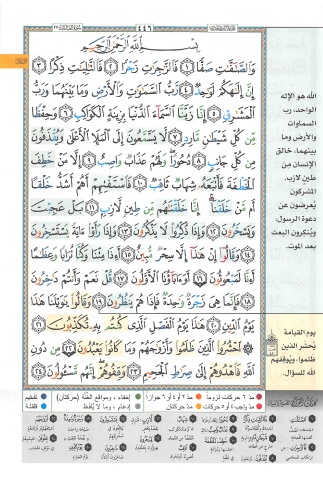 ٤٤٦
بِسْمِ اللَّهِ الرَّحْمَٰنِ الرَّحِيمِ
وَالصَّٰٓفَّٰتِ صَفًّا ١ فَالزَّٰجِرَٰتِ زَجْرًا ٢ فَالتَّٰلِيَٰتِ ذِكْرًا ٣
إِنَّ إِلَٰهَكُمْ لَوَٰحِدٌ ٤ رَّبُّ السَّمَٰوَٰتِ وَالْأَرْضِ وَمَا بَيْنَهُمَا وَرَبُّ
الْمَشَٰرِقِ ٥ إِنَّا زَيَّنَّا السَّمَآءَ الدُّنْيَا بِزِينَةٍ الْكَوَاكِبِ ٦ وَحِفْظًا
مِّن كُلِّ شَيْطَٰنٍ مَّارِدٍ ٧ لَّا يَسَّمَّعُونَ إِلَى الْمَلَإِ الْأَعْلَىٰ وَيُقْذَفُونَ
مِن كُلِّ جَانِبٍ ٨ دُحُورًا وَلَهُمْ عَذَابٌ وَاصِبٌ ٩ إِلَّا مَنْ خَطِفَ
الْخَطْفَةَ فَأَتْبَعَهُۥ شِهَابٌ ثَاقِبٌ ١٠ فَاسْتَفْتِهِمْ أَهُمْ أَشَدُّ خَلْقًا
أَم مَّنْ خَلَقْنَآ إِنَّا خَلَقْنَٰهُم مِّن طِينٍ لَّازِبٍ ١١ بَلْ عَجِبْتَ
وَيَسْخَرُونَ ١٢ وَإِذَا ذُكِّرُوا لَا يَذْكُرُونَ ١٣ وَإِذَا رَأَوْا ءَايَةً يَسْتَسْخِرُونَ
١٤ وَقَالُوٓا إِنْ هَٰذَآ إِلَّا سِحْرٌ مُّبِينٌ ١٥ أَءِذَا مِتْنَا وَكُنَّا تُرَابًا وَعِظَٰمًا
أَءِنَّا لَمَبْعُوثُونَ ١٦ أَوَءَابَآؤُنَا الْأَوَّلُونَ ١٧ قُلْ نَعَمْ وَأَنتُمْ دَٰخِرُونَ
١٨ فَإِنَّمَا هِيَ زَجْرَةٌ وَٰحِدَةٌ فَإِذَا هُمْ يَنظُرُونَ ١٩ وَقَالُوا يَٰوَيْلَنَا هَٰذَا
يَوْمُ الدِّينِ ٢٠ هَٰذَا يَوْمُ الْفَصْلِ الَّذِي كُنتُم بِهِۦ تُكَذِّبُونَ ٢١
احْشُرُوا الَّذِينَ ظَلَمُوا وَأَزْوَٰجَهُمْ وَمَا كَانُوا يَعْبُدُونَ ٢٢ مِن دُونِ
اللَّهِ فَاهْدُوهُمْ إِلَىٰ صِرَٰطِ الْجَحِيمِ ٢٣ وَقِفُوهُمْ إِنَّهُم مَّسْـُٔولُونَ ٢٤
الله هو الإله
الواحد، رب
السماوات
والأرض وما
بينهما، خالق
الإنسان من
طين لازب.
المشركون
يعرضون عن
دعوة الرسول،
وينكرون البعث
بعد الموت.
يوم القيامة
يُحشر الذين
ظلموا، ويوقفهم
الله للسؤال.
مد ٦ حركات لزوما
مد ٢ أو ٤ أو ٦ جوازا
إخفاء، ومواقع الغُنَّة (حركتان)
تفخيم
مد واجب ٤ أو ٥ حركات
مد حركتان
إدغام، وما لا يُلفظ
قلقلة